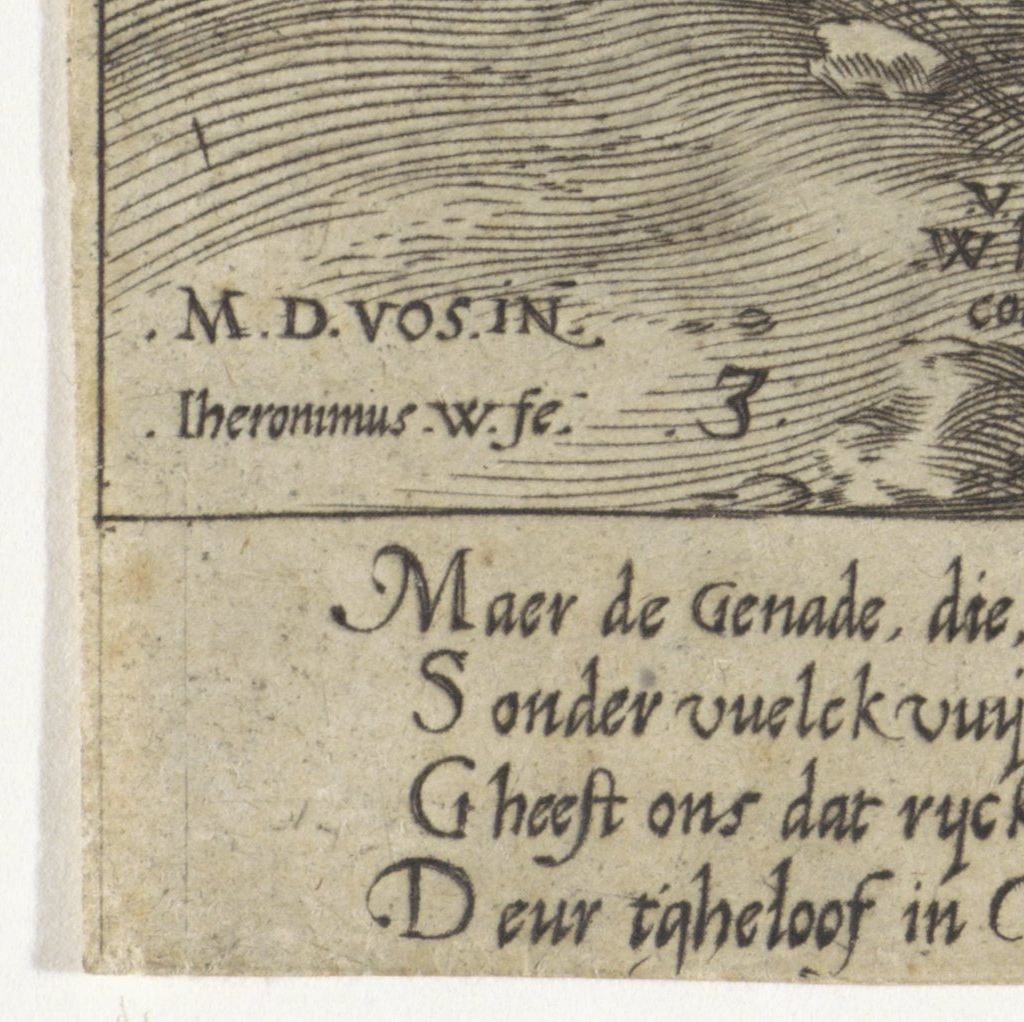 .M.D.VOS.IN.
.Iheronimus.W.fe.
.3.
V
W.
co
Maer de Genade, die,
Sonder vuelck vuij
Gheeft ons dat ryck
Deur tgheloof in